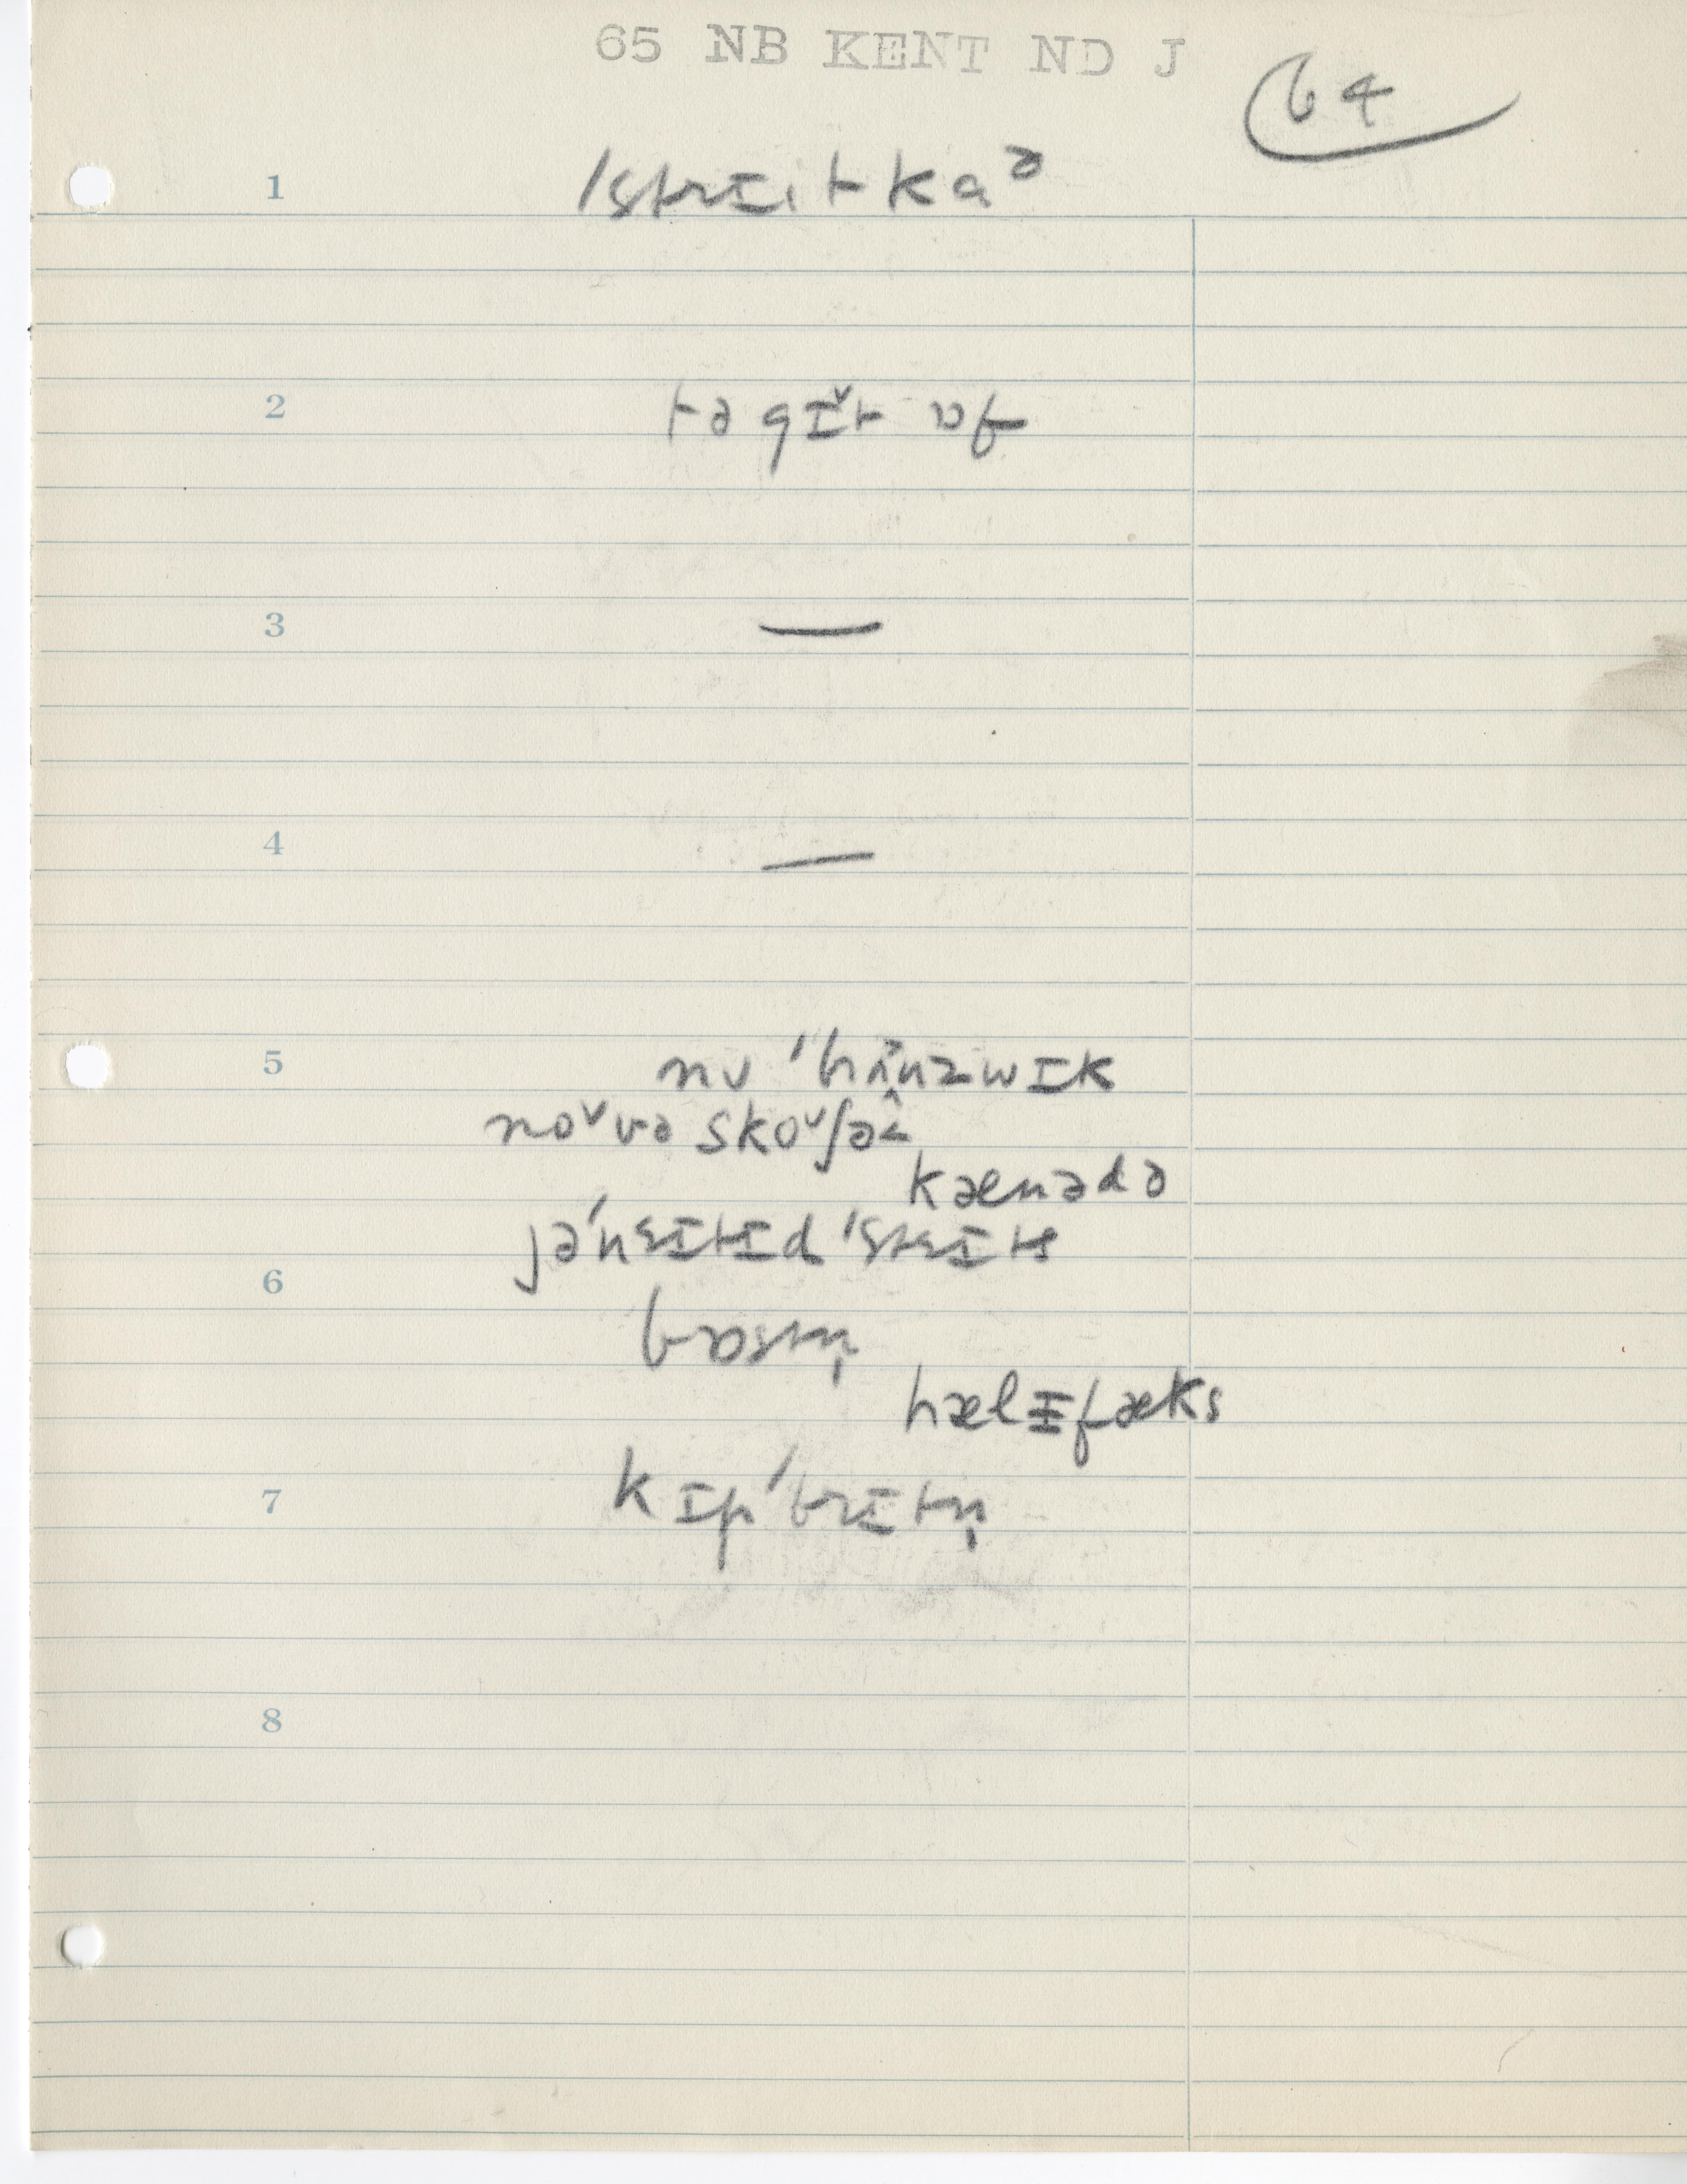 65 NB KENT ND J
64
1 ˈstriitkaᵊ
2 tə gɪˇt ɒf
3 —
4 —
5 nu ˈbrʌnzwɪk
noˇvə skoˇʃə
kænədə
jəˈnɛɪtɪd ˈstɛɪts
6
bɒstn̩
hælɪfæks
7 kɪpˈbrɪtn̩
8